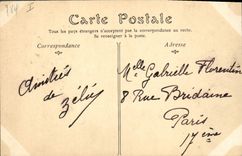 714 I
Carte Postale
Tous les pays étrangers n'acceptent pas la correspondance au recto.
Se renseigner à la poste.
Correspondance
Adresse
Amitiés
de
Zélie
Melle Gabrielle Florentin
8 Rue Bridaine
Paris
17ème